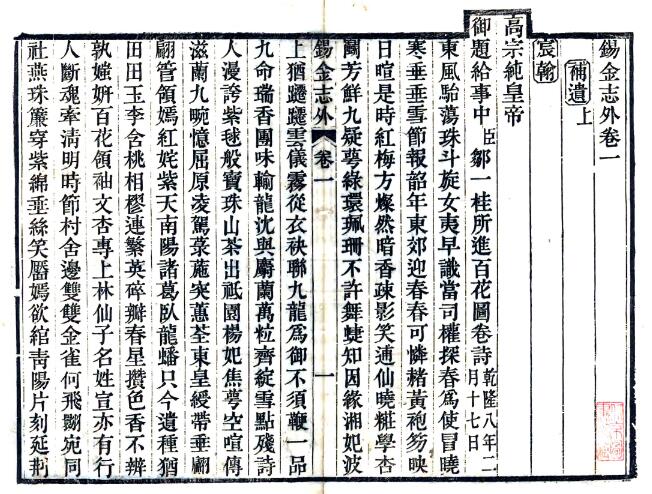 錫金志外卷一
補遺上
宸翰
高宗純皇帝
御題給事中臣鄒一桂所進百花圖卷詩乾隆八年二月十七日
東風駘蕩珠斗旋女夷早識當司權探春爲使冒曉
寒垂垂雪節報韶年東郊迎春春可憐赭黃袍笏映
日暄是時紅梅方燦然暗香疎影笑逋仙曉糚學杏
鬬芳鮮九疑萼綠環珮珊不許舞蜨知因緣湘妃波
上猶躚躚雲儀霧從衣袂聯九龍爲御不須鞭一品
錫金志外
卷一
一
九命瑞香團味輸龍沈與麝蘭萬粒齊綻雪點殘詩
人漫誇紫毬般寶珠山茶出祗園楊妃焦萼空喧傳
滋蘭九畹憶屈原凌駕菉葹突蕙荃東皇綬帶垂翩
翩管領嫣紅姹紫天南陽諸葛臥龍蟠只今遺種猶
田田玉李含桃相樛連繁英碎瓣春星攢色香不辨
孰媸妍百花領袖文杏專上林仙子名姓宣亦有行
人斷魂牽清明時節村舍邊雙雙金雀何飛翾宛同
社燕珠簾穿紫綿垂絲笑靨嫣欲綰靑陽片刻延荆